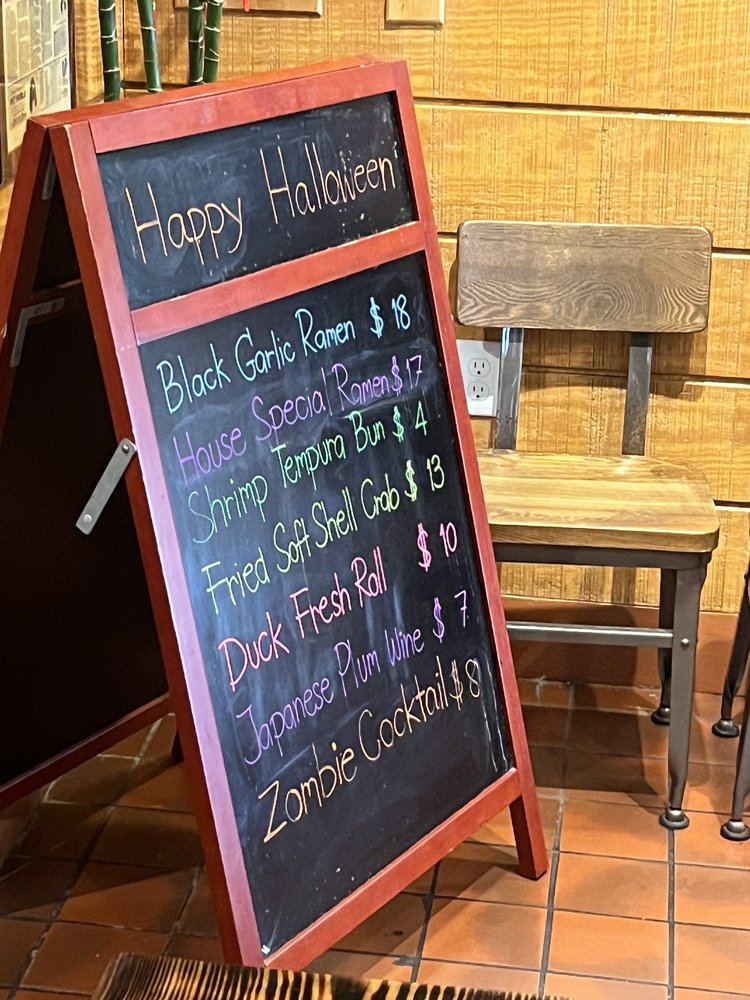 Happy Halloween
Black Garlic Ramen $ 18
House Special Ramen $ 17
Shrimp Tempura Bun $ 4
Fried Soft Shell Crab $ 13
Duck Fresh Roll $ 10
Japanese Plum Wine $ 7
Zombie Cocktail $ 8